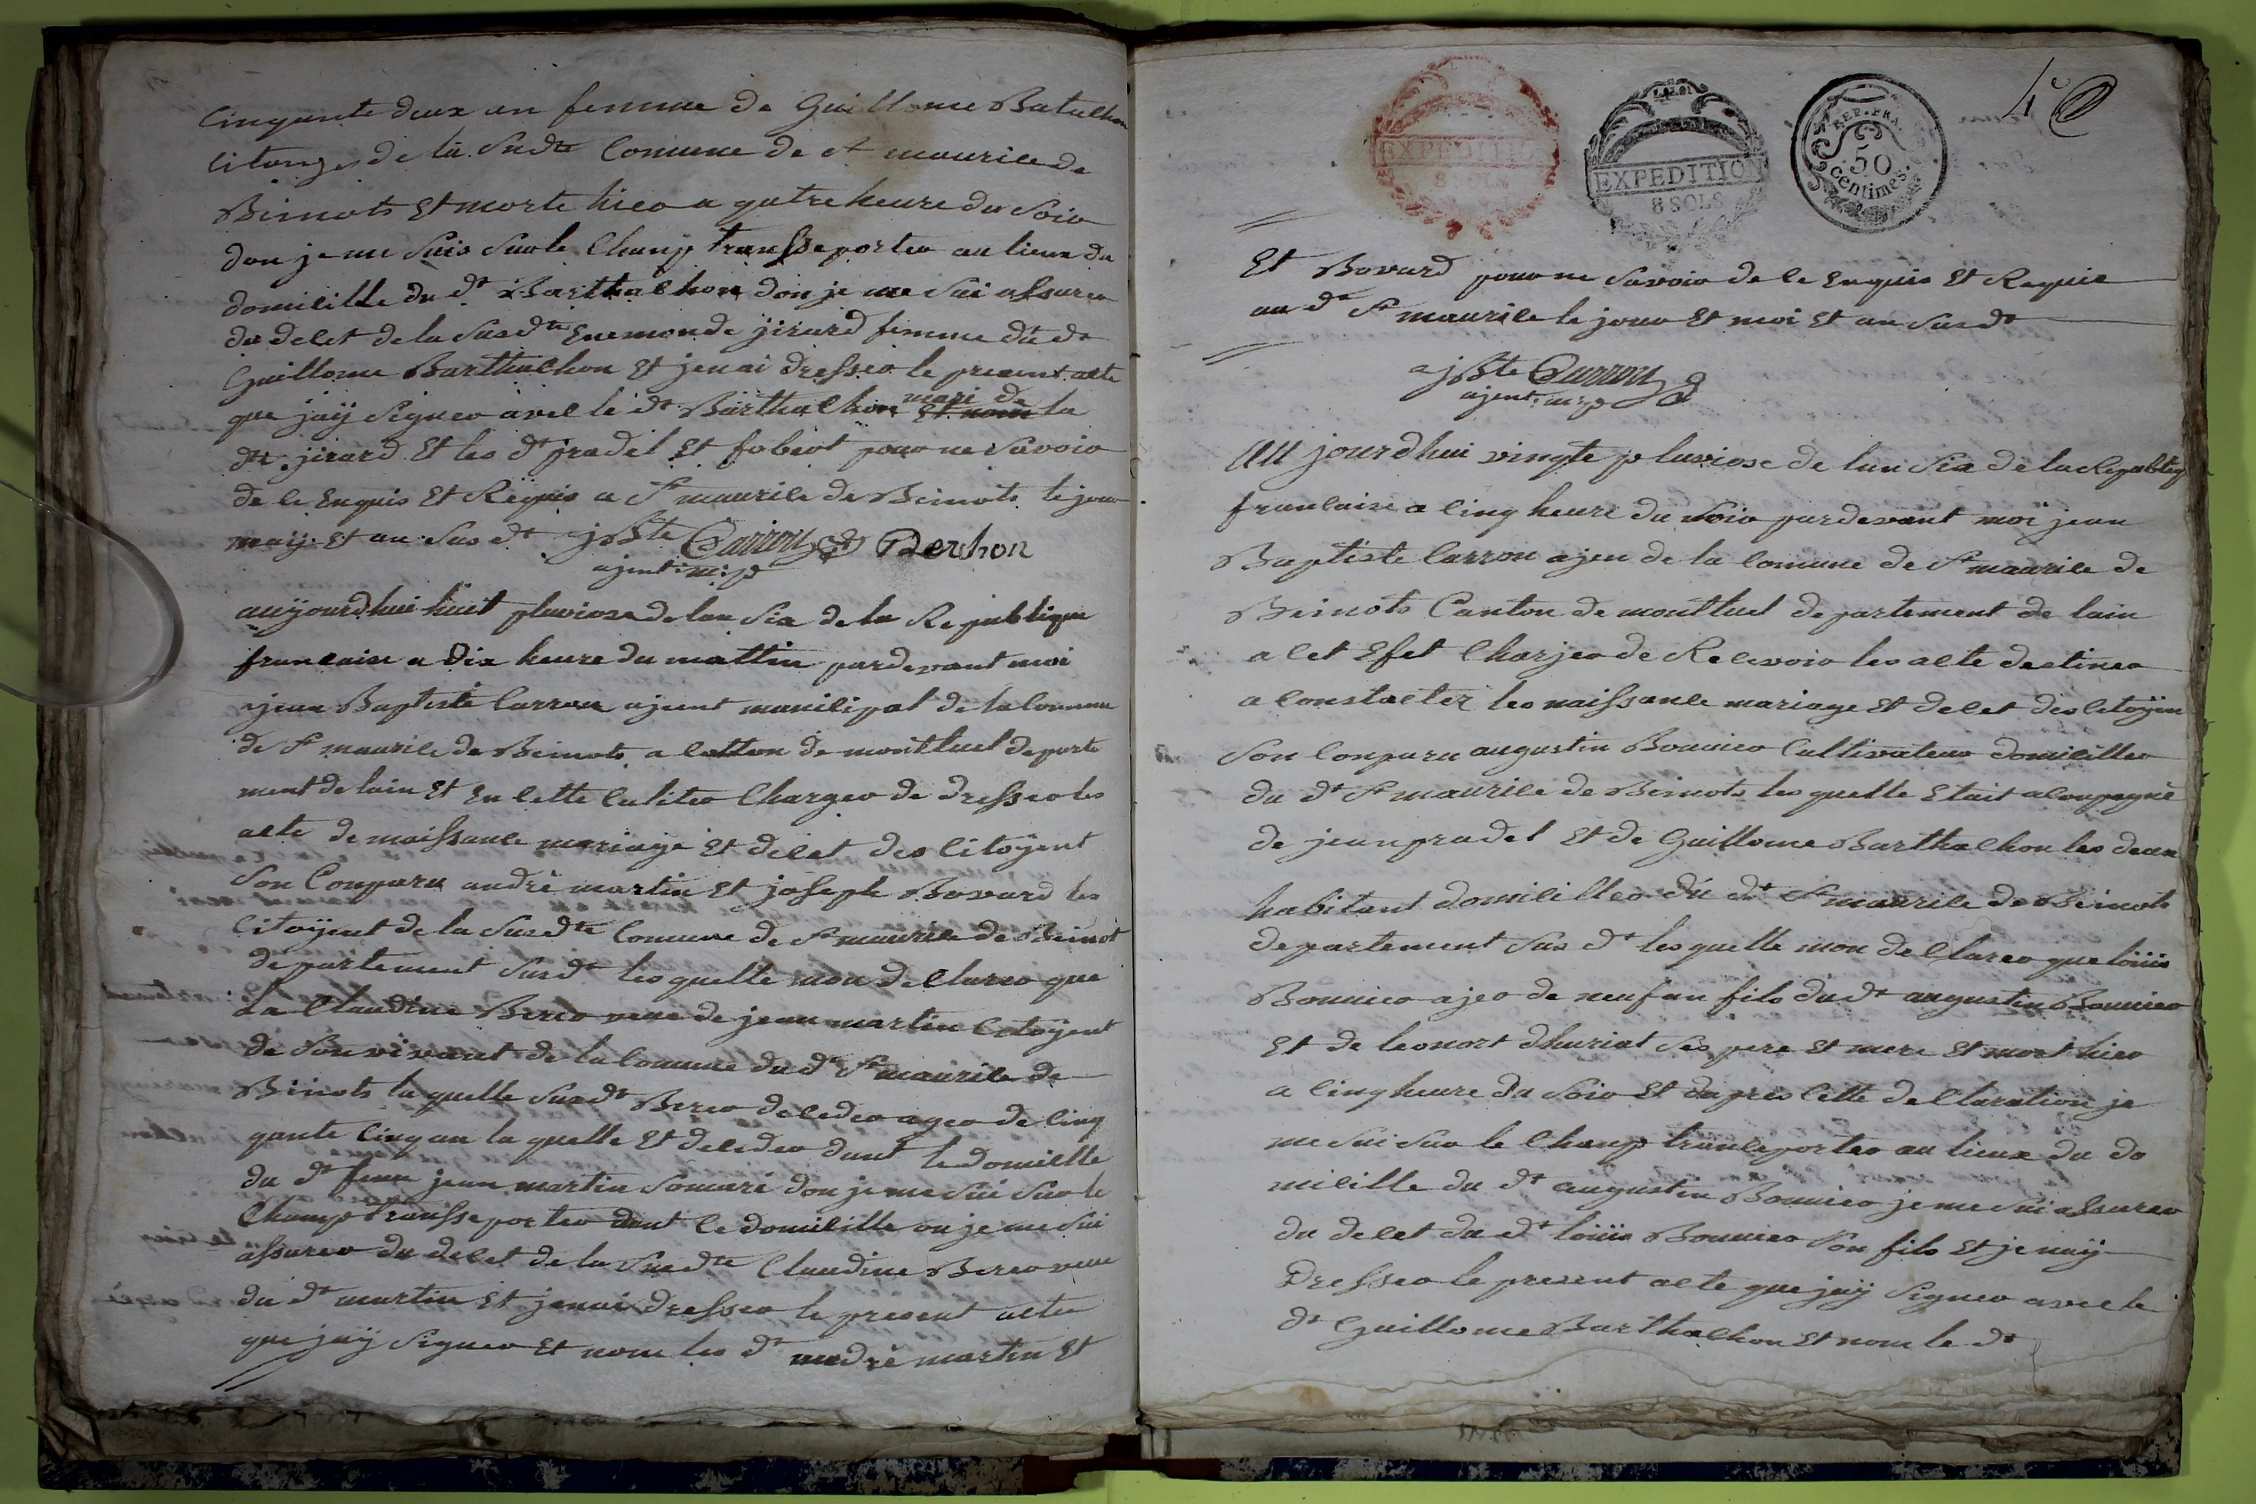 Cinquante deux an femme de Guillome Batalhon
Citoyen de la Susdte Comune de st maurice de
Beinots Et morte hier a quatre heure du Soir
don je me Suis Sur le Champ transseporter au lieux du
domicille du dt Barthalhon don je me Sui assurer
du decet de la Susdte Enemonde jirard femme du dt
Guillome Barthalhon Et jenai dresser le present acte
que jaÿ Signer avec le dt Barthalhon mari de la
dte jirard Et les dt pradel Et fobert pour ne Savoir
de ce Enquis Et Requis a St maurice de Beinots le jour
moÿ Et an Sus dt jBte Carron Berchon
ajent m:p
aujourdhui huit pluviose de lan Six de la Republique
francaise a Dix heure du mattin pardevant moi
jean Baptiste Carron ajent municipal de la Comune
de St maurice de Beinots a Catton de montluel departe
ment de lain Et En Cette Caliter Charger de dresser les
acte de naissance mariage Et decet des Citoyent
Son Conparu andrè martin Et joseph Bovard les
Citoÿent de la Susdte Comune de St maurice de Beinot
departement Susdt les quelle mon declarer que
La Claudine Berer veue de jean martin Citoÿent
de Son vivant de la Comune du dt St maurice de
Beinots la quelle Susdt Berer deceder ager de Cinq
qante Cinq an la quelle Et deceder dant le domicille
du dt feue jean martin Somari don je me Sui Sur le
Champ transseporter dant le domicille ou je me Sui
assurer du decet de la Susdte Claudine Berer veue
du dt martin Et jenai dresser le present acte
que jaÿ Signer Et nom les dt andrè martin Et
4e
EXPEDITION
8 SOLS
LA LOI
EXPEDITION
8 SOLS
REP. FRA.
50
centimes.
Et Bovard pour ne Savoir de ce Enquis Et Requie
au dt St maurice le jour Et moi Et an Susdt
jBte Carron
ajent: m:p
AU jourdhui vingte pluviose de lan Six de la Republiq
francaise a Cinq heure du Soir pardevant moï jean
Baptiste Carron ajen de la Comune de St maurice de
Beinots Canton de montluel departement de lain
a Cet Efet Charjer de Recevoir les acte destiner
a Constacter les naissance mariage Et decet des Citoÿen
Son Conparu augustin Bounier Cultivateur domiciller
du dt St maurice de Beinots les quelle Etait aConpagné
de jean pradel Et de Guillome Barthalhon les deux
habitant domiciller du dt St maurice de Beinots
departement Sus dt les quelle mon declarer que loüis
Bounier ajer de neuf an fils du dt augustin Bounier
Et de leonort dhuriat Ses pere Et mere Et mort hier
a Cinq heure du Soir Et dapres Cette declaration je
me Sui Sur le Champ tranceporter au lieux du do
micille du dt augustin Bounier je me Sui assurer
du decet du dt loüis Bounier Son fils Et je naÿ
Dresser le present acte que jaÿ Signer avec le
dt Guillome Barthalhon Et nom le dt